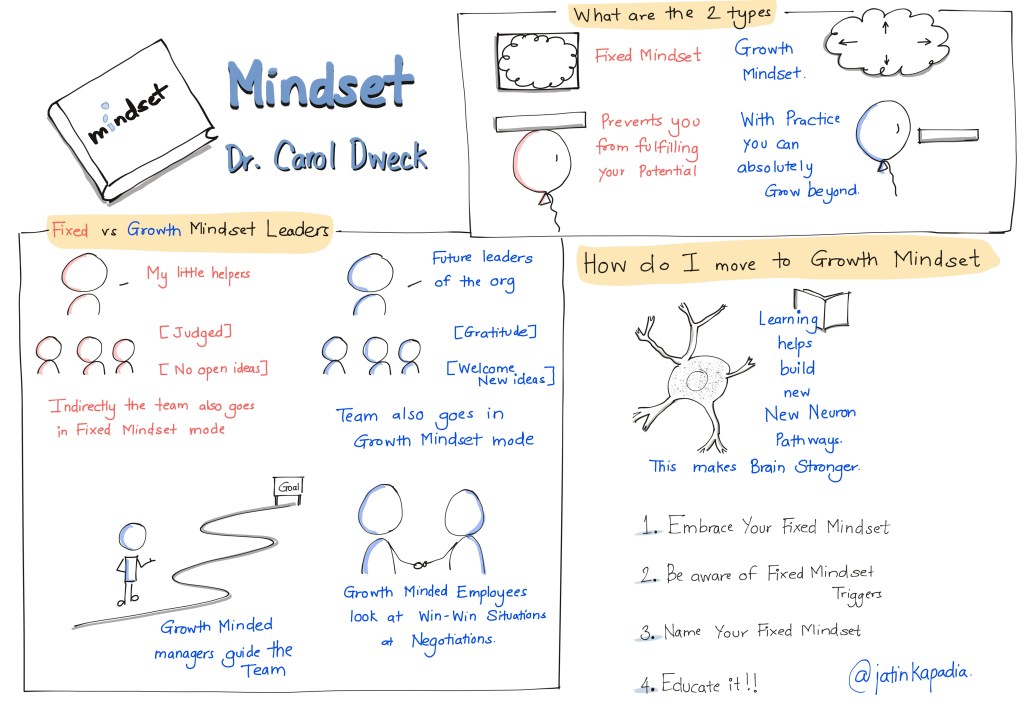 mindset
Mindset
Dr. Carol Dweck
What are the 2 types
Fixed Mindset
Growth
Mindset.
Prevents you
from fulfilling
your Potential
With Practice
you can
absolutely
Grow beyond.
Fixed vs Growth Mindset Leaders
My little helpers
[Judged]
[No open ideas]
Indirectly the team also goes
in Fixed Mindset mode
Future leaders
of the org
[Gratitude]
[Welcome
New ideas]
Team also goes in
Growth Mindset mode
Goal
Growth Minded
managers guide the
Team
Growth Minded Employees
look at Win-Win Situations
at Negotiations.
How do I move to Growth Mindset
Learning
helps
build
new
New Neuron
Pathways.
This makes Brain Stronger.
1. Embrace Your Fixed Mindset
2. Be aware of Fixed Mindset
Triggers
3. Name Your Fixed Mindset
4. Educate it!!
@jatinkapadia.